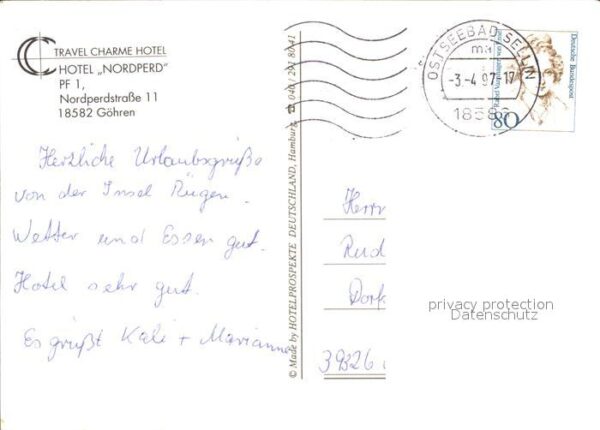 TRAVEL CHARME HOTEL
HOTEL „NORDPERD"
PF 1,
Nordperdstraße 11
18582 Göhren
Herzliche Urlaubsgrüße
von der Insel Rügen.
Wetter und Essen gut.
Hotel sehr gut.
Es grüßt Kali + Marianne
© Made by HOTELPROSPEKTE DEUTSCHLAND, Hamburg, ☎ 040 / 291 80 41
OSTSEEBAD SELLIN
ma
-3.-4.97-17
18586
Deutsche Bundespost
Rahel Varnhagen von Ense
80
Herrn
Rud
Dorf
39326
privacy protection
Datenschutz